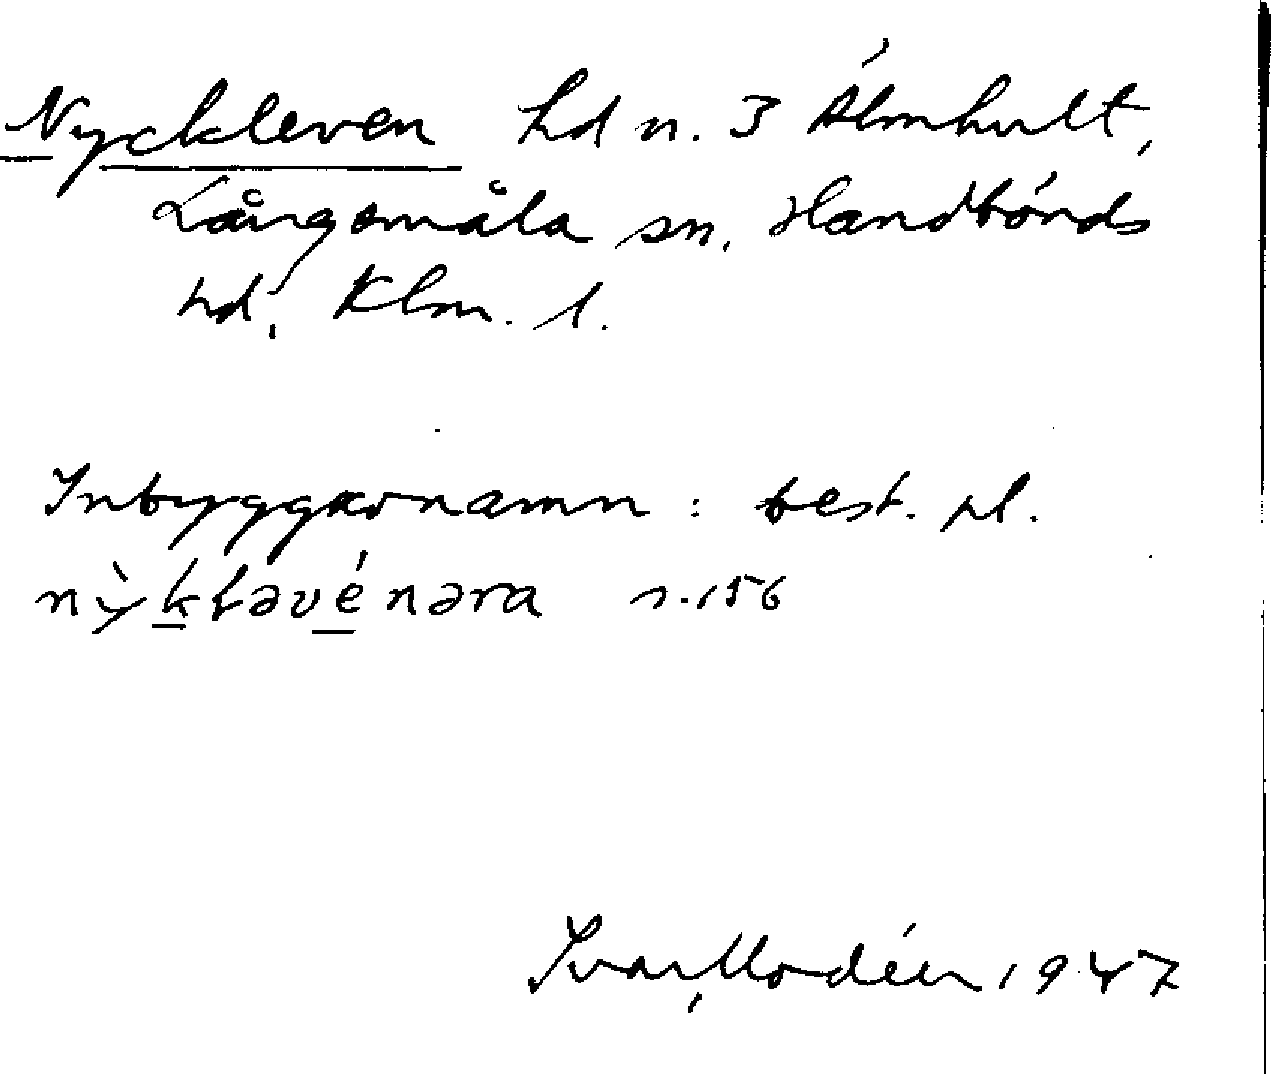 Nyckleven hd n. 3 Álmhult,
Långsmåla sn, Handbörds
hd, Klm. l.
Inbyggarnamn: best. pl.
nỳkləvénəra s. 156
Ivar Modéer 1947